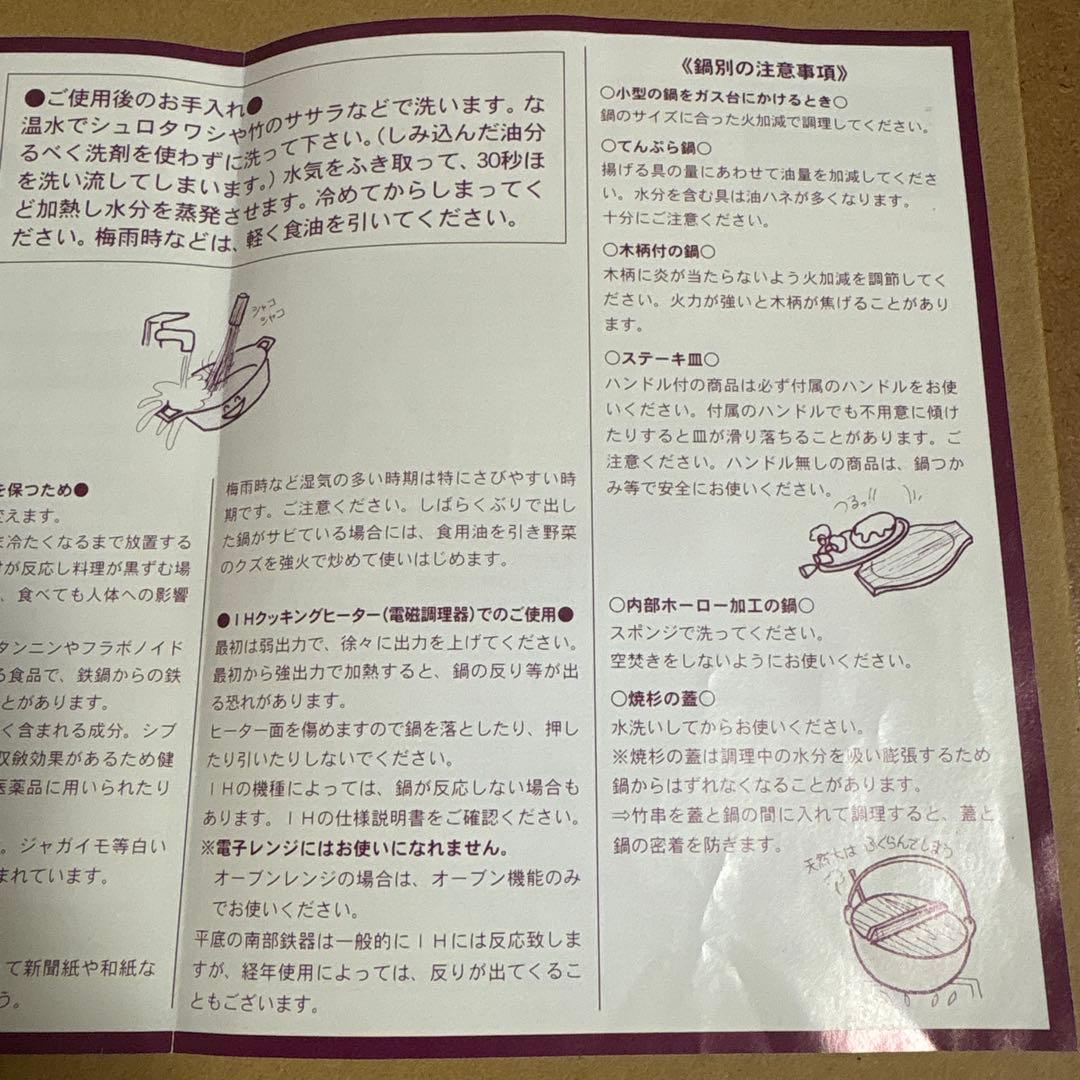 ●ご使用後のお手入れ●
温水でシュロタワシや竹のササラなどで洗います。な
るべく洗剤を使わずに洗って下さい。（しみ込んだ油分
を洗い流してしまいます。）水気をふき取って、30秒ほ
ど加熱し水分を蒸発させます。冷めてからしまってく
ださい。梅雨時などは、軽く食油を引いてください。
シャコ
シャコ
を保つため●
変えます。
ま冷たくなるまで放置する
が反応し料理が黒ずむ場
、食べても人体への影響
タンニンやフラボノイド
る食品で、鉄鍋からの鉄
とがあります。
く含まれる成分。シブ
収斂効果があるため健
医薬品に用いられたり
。ジャガイモ等白い
まれています。
て新聞紙や和紙な
う。
梅雨時など湿気の多い時期は特にさびやすい時
期です。ご注意ください。しばらくぶりで出し
た鍋がサビている場合には、食用油を引き野菜
のクズを強火で炒めて使いはじめます。
●ＩＨクッキングヒーター（電磁調理器）でのご使用●
最初は弱出力で、徐々に出力を上げてください。
最初から強出力で加熱すると、鍋の反り等が出
る恐れがあります。
ヒーター面を傷めますので鍋を落としたり、押し
たり引いたりしないでください。
ＩＨの機種によっては、鍋が反応しない場合も
あります。ＩＨの仕様説明書をご確認ください。
※電子レンジにはお使いになれません。
オーブンレンジの場合は、オーブン機能のみ
でお使いください。
平底の南部鉄器は一般的にＩＨには反応致しま
すが、経年使用によっては、反りが出てくるこ
ともございます。
《鍋別の注意事項》
○小型の鍋をガス台にかけるとき○
鍋のサイズに合った火加減で調理してください。
○てんぷら鍋○
揚げる具の量にあわせて油量を加減してくださ
い。水分を含む具は油ハネが多くなります。
十分にご注意ください。
○木柄付の鍋○
木柄に炎が当たらないよう火加減を調節してく
ださい。火力が強いと木柄が焦げることがあり
ます。
○ステーキ皿○
ハンドル付の商品は必ず付属のハンドルをお使
いください。付属のハンドルでも不用意に傾け
たりすると皿が滑り落ちることがあります。ご
注意ください。ハンドル無しの商品は、鍋つか
み等で安全にお使いください。
つるっ!!
○内部ホーロー加工の鍋○
スポンジで洗ってください。
空焚きをしないようにお使いください。
○焼杉の蓋○
水洗いしてからお使いください。
※焼杉の蓋は調理中の水分を吸い膨張するため
鍋からはずれなくなることがあります。
⇒竹串を蓋と鍋の間に入れて調理すると、蓋と
鍋の密着を防ぎます。
天然木は ふくらんでしまう